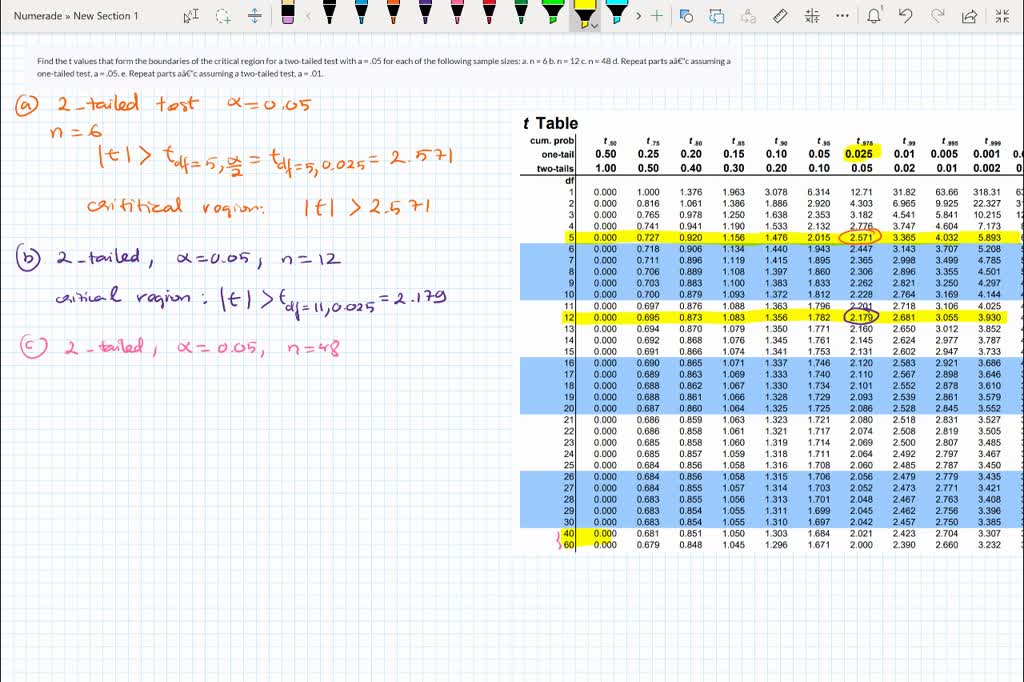 Numerade » New Section 1
Find the t values that form the boundaries of the critical region for a two-tailed test with a = .05 for each of the following sample sizes: a. n = 6 b. n = 12 c. n = 48 d. Repeat parts aâ€"c assuming a
one-tailed test, a = .05. e. Repeat parts aâ€"c assuming a two-tailed test, a = .01.
(a) 2-tailed test α=0.05
n = 6
|t| > t df=5, α/2 = t df=5, 0.025 = 2.571
crititical region: |t| > 2.571
(b) 2-tailed, α=0.05, n=12
critical region: |t| > t df=11, 0.025 = 2.179
(c) 2-tailed, α=0.05, n=48
t Table
cum. prob t .50 t .75 t .80 t .85 t .90 t .95 t .975 t .99 t .995 t .999
one-tail 0.50 0.25 0.20 0.15 0.10 0.05 0.025 0.01 0.005 0.001
two-tails 1.00 0.50 0.40 0.30 0.20 0.10 0.05 0.02 0.01 0.002
df
1 0.000 1.000 1.376 1.963 3.078 6.314 12.71 31.82 63.66 318.31
2 0.000 0.816 1.061 1.386 1.886 2.920 4.303 6.965 9.925 22.327
3 0.000 0.765 0.978 1.250 1.638 2.353 3.182 4.541 5.841 10.215
4 0.000 0.741 0.941 1.190 1.533 2.132 2.776 3.747 4.604 7.173
5 0.000 0.727 0.920 1.156 1.476 2.015 2.571 3.365 4.032 5.893
6 0.000 0.718 0.906 1.134 1.440 1.943 2.447 3.143 3.707 5.208
7 0.000 0.711 0.896 1.119 1.415 1.895 2.365 2.998 3.499 4.785
8 0.000 0.706 0.889 1.108 1.397 1.860 2.306 2.896 3.355 4.501
9 0.000 0.703 0.883 1.100 1.383 1.833 2.262 2.821 3.250 4.297
10 0.000 0.700 0.879 1.093 1.372 1.812 2.228 2.764 3.169 4.144
11 0.000 0.697 0.876 1.088 1.363 1.796 2.201 2.718 3.106 4.025
12 0.000 0.695 0.873 1.083 1.356 1.782 2.179 2.681 3.055 3.930
13 0.000 0.694 0.870 1.079 1.350 1.771 2.160 2.650 3.012 3.852
14 0.000 0.692 0.868 1.076 1.345 1.761 2.145 2.624 2.977 3.787
15 0.000 0.691 0.866 1.074 1.341 1.753 2.131 2.602 2.947 3.733
16 0.000 0.690 0.865 1.071 1.337 1.746 2.120 2.583 2.921 3.686
17 0.000 0.689 0.863 1.069 1.333 1.740 2.110 2.567 2.898 3.646
18 0.000 0.688 0.862 1.067 1.330 1.734 2.101 2.552 2.878 3.610
19 0.000 0.688 0.861 1.066 1.328 1.729 2.093 2.539 2.861 3.579
20 0.000 0.687 0.860 1.064 1.325 1.725 2.086 2.528 2.845 3.552
21 0.000 0.686 0.859 1.063 1.323 1.721 2.080 2.518 2.831 3.527
22 0.000 0.686 0.858 1.061 1.321 1.717 2.074 2.508 2.819 3.505
23 0.000 0.685 0.858 1.060 1.319 1.714 2.069 2.500 2.807 3.485
24 0.000 0.685 0.857 1.059 1.318 1.711 2.064 2.492 2.797 3.467
25 0.000 0.684 0.856 1.058 1.316 1.708 2.060 2.485 2.787 3.450
26 0.000 0.684 0.856 1.058 1.315 1.706 2.056 2.479 2.779 3.435
27 0.000 0.684 0.855 1.057 1.314 1.703 2.052 2.473 2.771 3.421
28 0.000 0.683 0.855 1.056 1.313 1.701 2.048 2.467 2.763 3.408
29 0.000 0.683 0.854 1.055 1.311 1.699 2.045 2.462 2.756 3.396
30 0.000 0.683 0.854 1.055 1.310 1.697 2.042 2.457 2.750 3.385
40 0.000 0.681 0.851 1.050 1.303 1.684 2.021 2.423 2.704 3.307
60 0.000 0.679 0.848 1.045 1.296 1.671 2.000 2.390 2.660 3.232